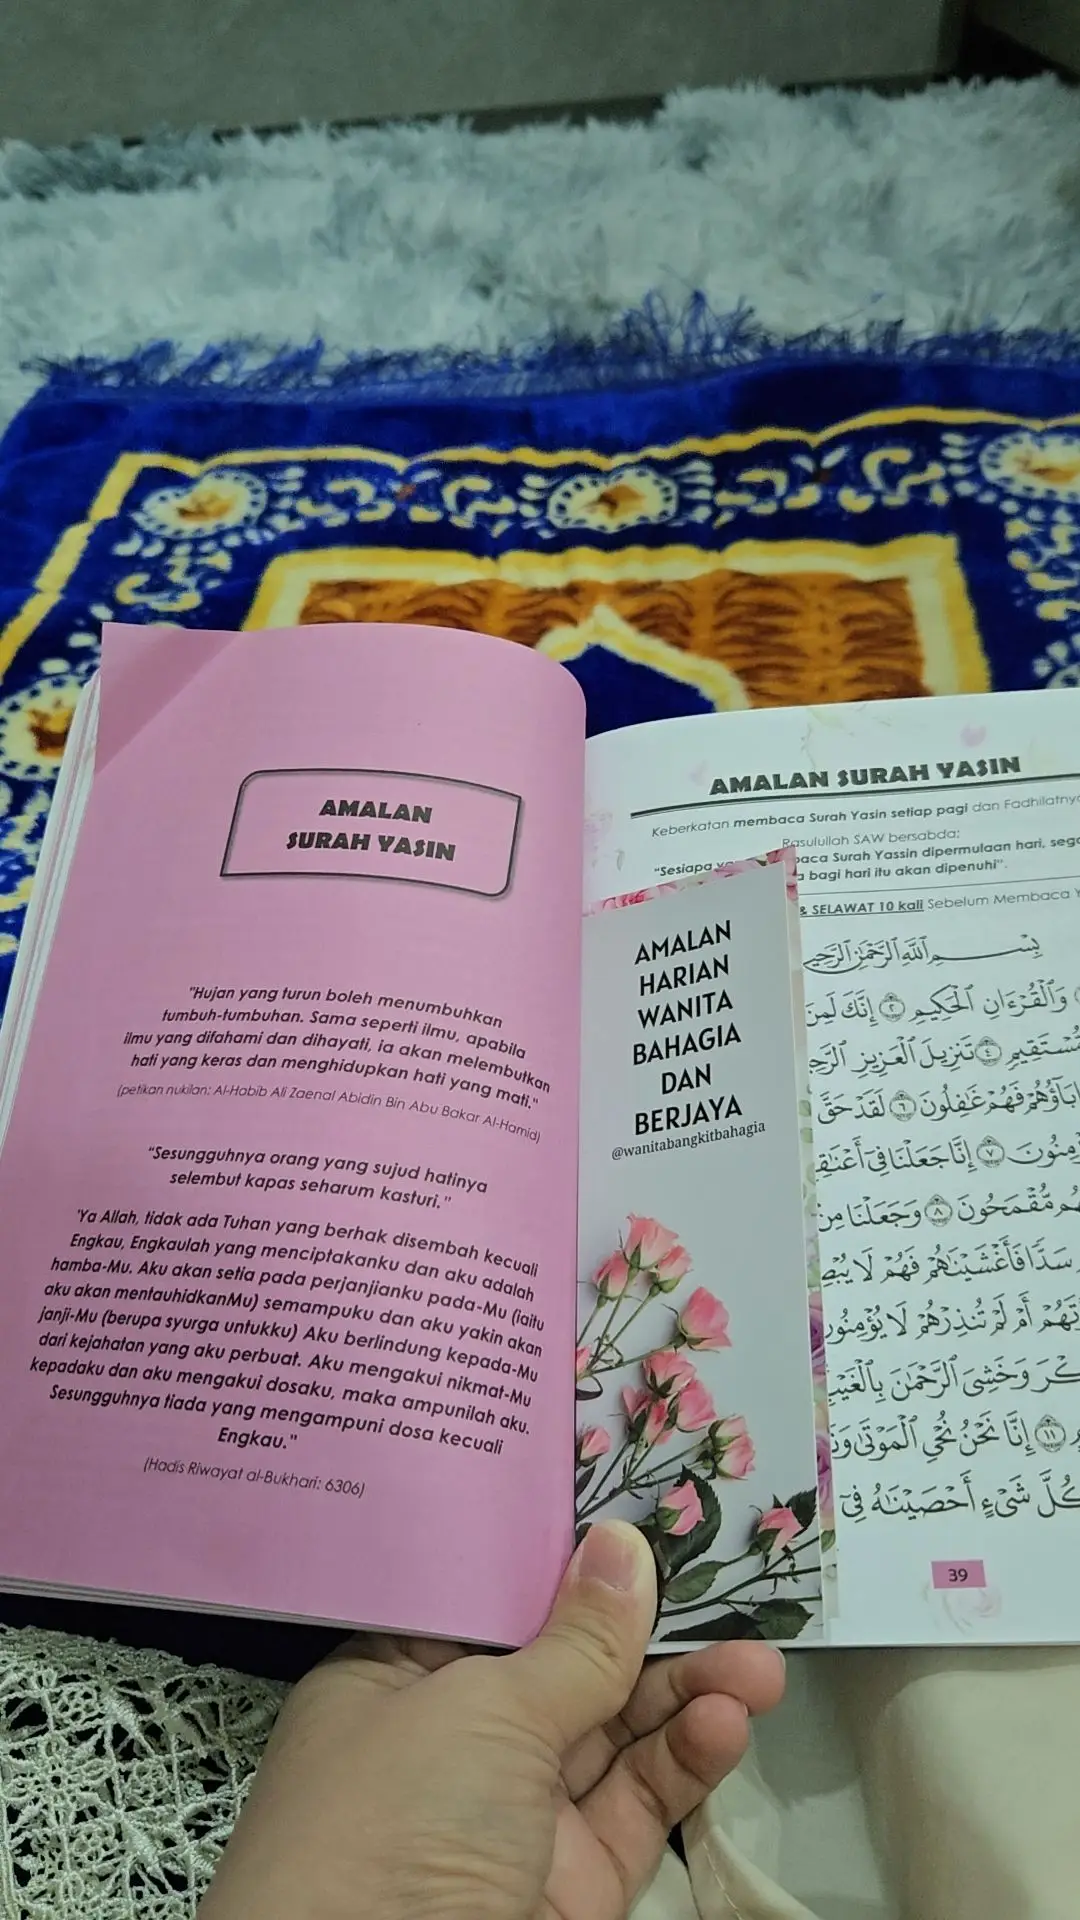 AMALAN
SURAH YASIN
"Hujan yang turun boleh menumbuhkan
tumbuh-tumbuhan. Sama seperti ilmu, apabila
ilmu yang difahami dan dihayati, ia akan melembutkan
hati yang keras dan menghidupkan hati yang mati."
(petikan nukilan: Al-Habib Ali Zaenal Abidin Bin Abu Bakar Al-Hamid)
"Sesungguhnya orang yang sujud hatinya
selembut kapas seharum kasturi."
'Ya Allah, tidak ada Tuhan yang berhak disembah kecuali
Engkau, Engkaulah yang menciptakanku dan aku adalah
hamba-Mu. Aku akan setia pada perjanjianku pada-Mu (iaitu
aku akan mentauhidkanMu) semampuku dan aku yakin akan
janji-Mu (berupa syurga untukku) Aku berlindung kepada-Mu
dari kejahatan yang aku perbuat. Aku mengakui nikmat-Mu
kepadaku dan aku mengakui dosaku, maka ampunilah aku.
Sesungguhnya tiada yang mengampuni dosa kecuali
Engkau."
(Hadis Riwayat al-Bukhari: 6306)
AMALAN
HARIAN
WANITA
BAHAGIA
DAN
BERJAYA
@wanitabangkitbahagia
AMALAN SURAH YASIN
Keberkatan membaca Surah Yasin setiap pagi dan Fadhilatnya
Rasulullah SAW bersabda:
"Sesiapa baca Surah Yassin dipermulaan hari,
bagi hari itu akan dipenuhi".
& SELAWAT 10 kali Sebelum Membaca
بِسْمِ ٱللَّهِ ٱلرَّحْمَٰنِ ٱلرَّحِيمِ
وَٱلْقُرْءَانِ ٱلْحَكِيمِ ٢ إِنَّكَ لَمِنَ
مُّسْتَقِيمٍ ٤ تَنزِيلَ ٱلْعَزِيزِ
ءَابَآؤُهُمْ فَهُمْ غَٰفِلُونَ ٦ لَقَدْ حَقَّ
٧ إِنَّا جَعَلْنَا فِىٓ
مُّقْمَحُونَ ٨ وَجَعَلْنَا مِنۢ
سَدًّا فَأَغْشَيْنَٰهُمْ فَهُمْ لَا
أَمْ لَمْ تُنذِرْهُمْ لَا يُؤْمِنُونَ
وَخَشِىَ ٱلرَّحْمَٰنَ بِٱلْغَيْبِ
١١ إِنَّا نَحْنُ نُحْىِ ٱلْمَوْتَىٰ
كُلَّ شَىْءٍ أَحْصَيْنَٰهُ فِىٓ
39